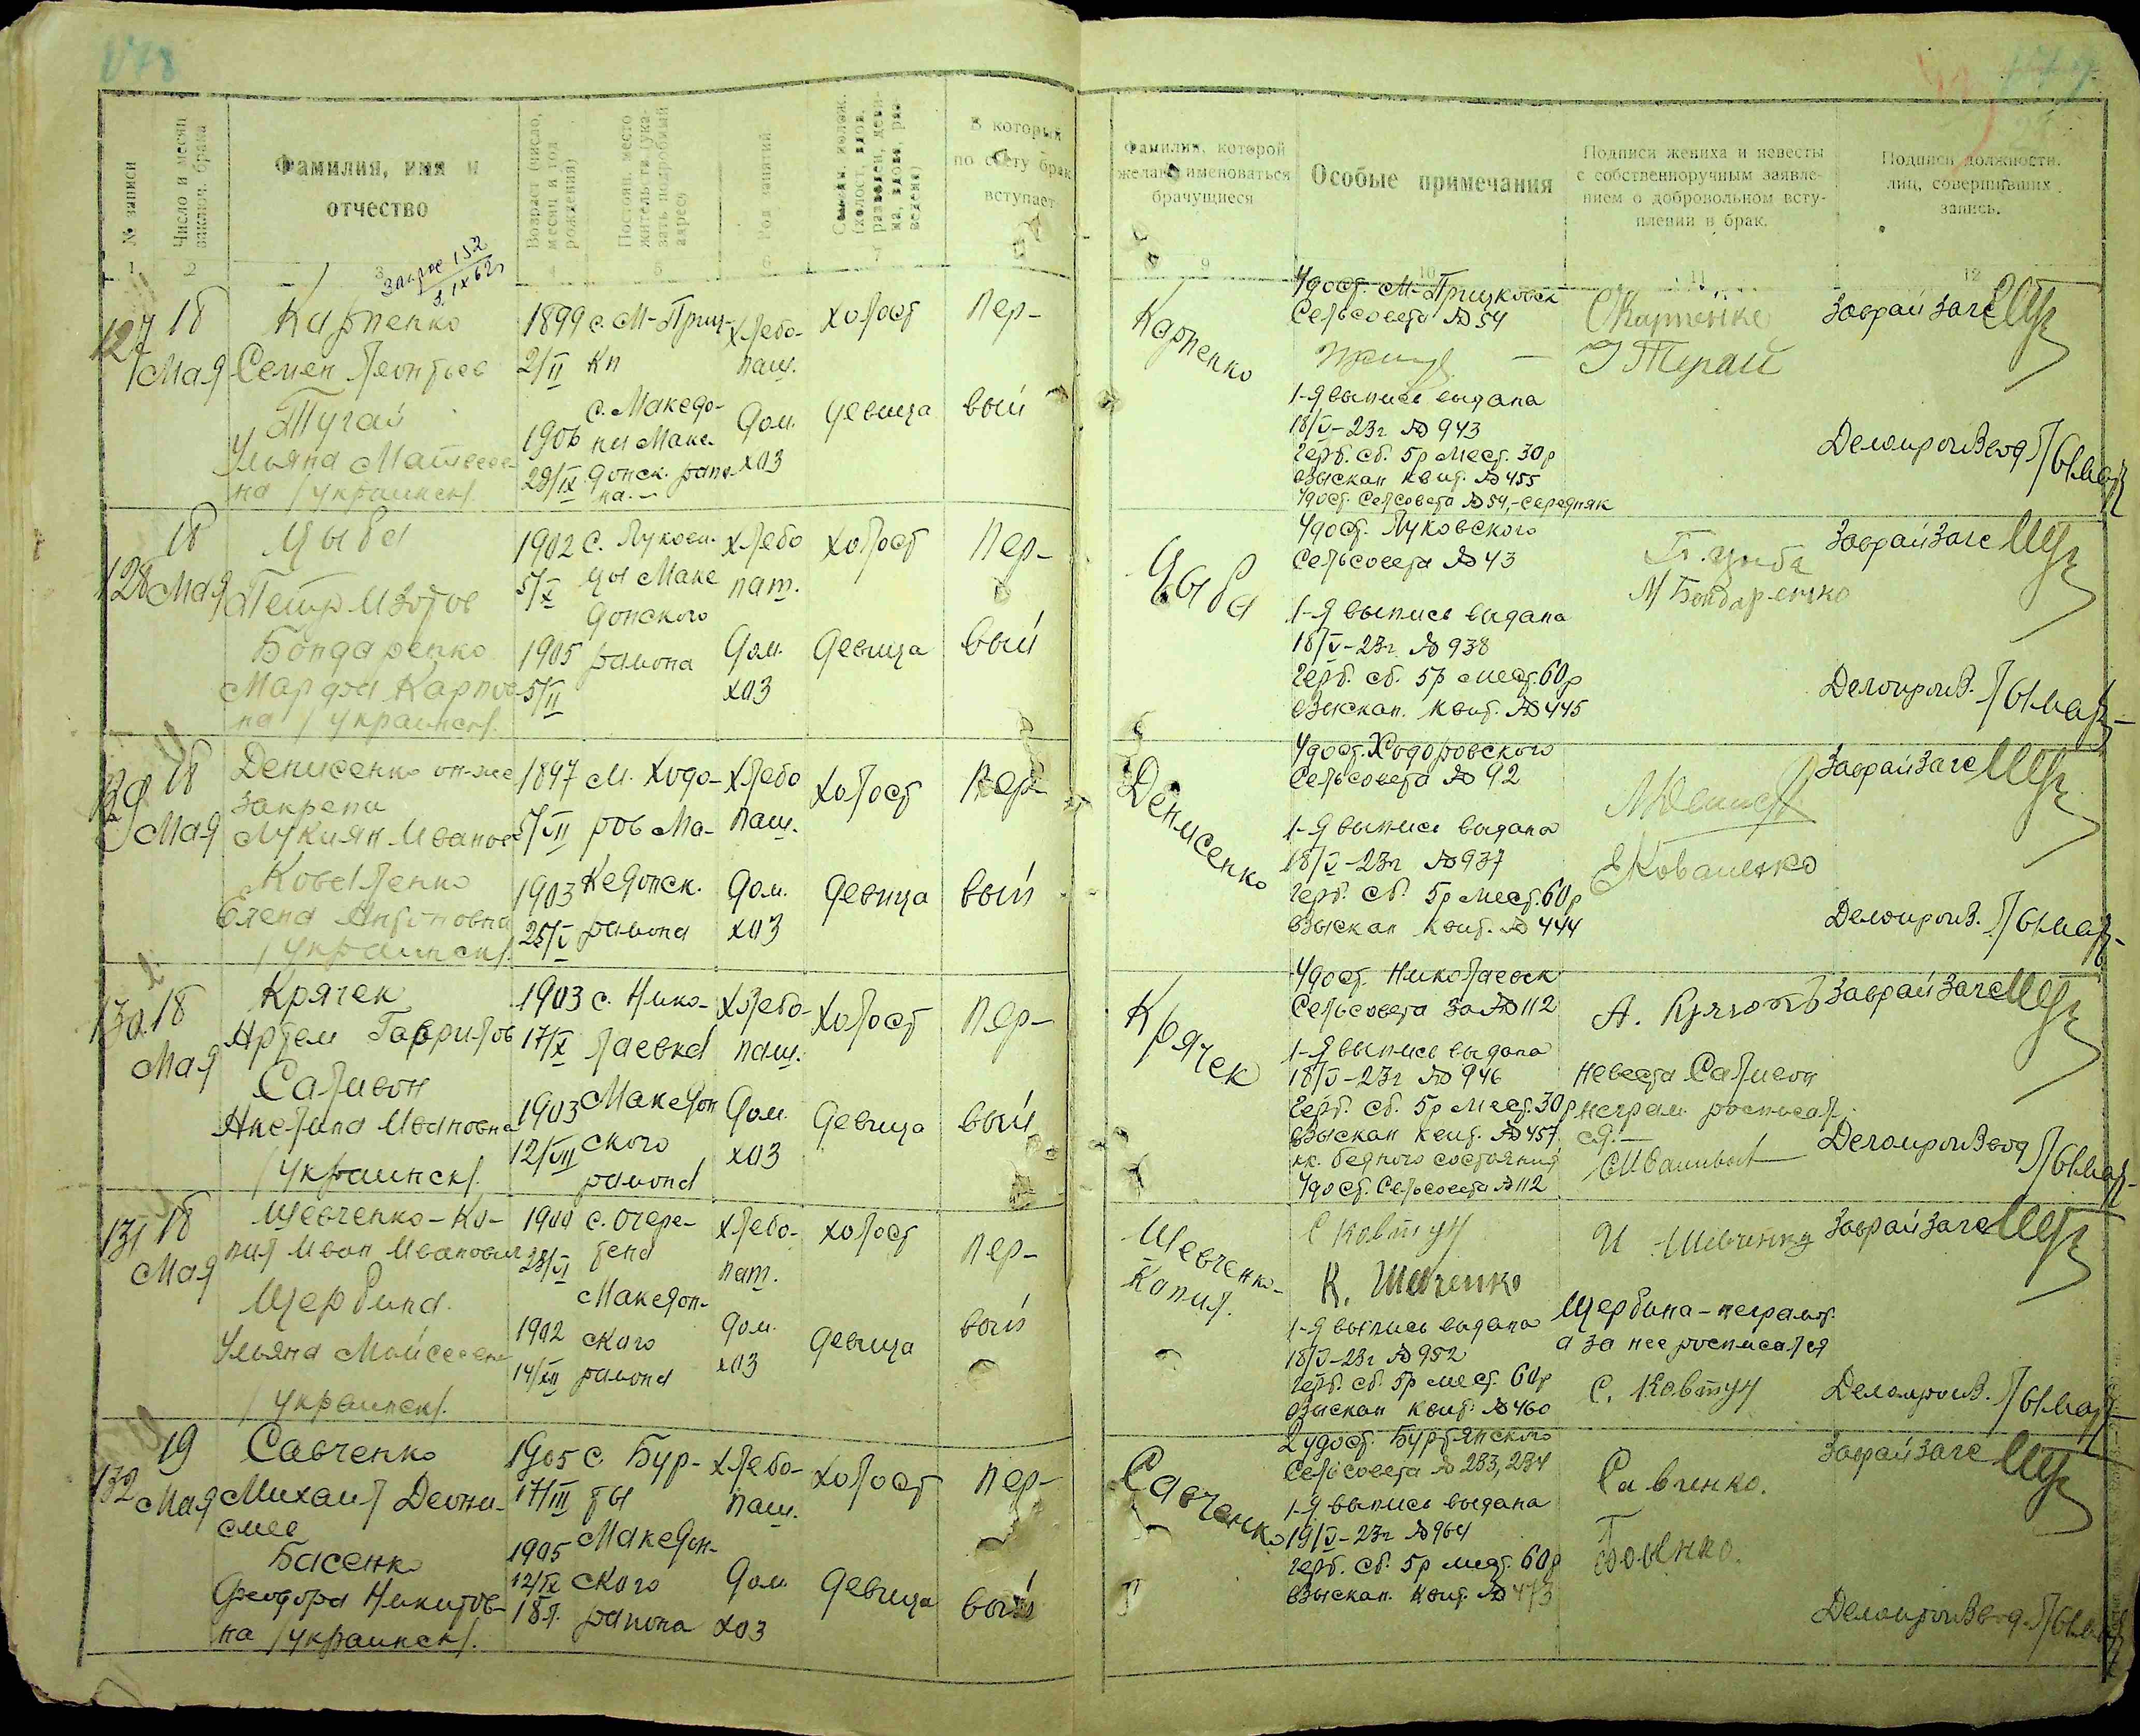 178
№ записи
Число и месяц заключ. брака
Фамилия, имя и
отчество
Возраст (число, месяц и год рождения)
Постоян. место жительства (указать подробный адрес)
Род занятий
В который
по счету брак
вступает
Фамилия, которой
желают именоваться
брачущиеся
Особые примечания
Подписи жениха и невесты
с собственноручным заявле-
нием о добровольном всту-
плении в брак.
Подписи должности.
лиц, совершивших
запись.
1 2 3 4 5 6 7
9 10 11 12
127
18
Мая
Карпенко
Семен Леонтьев
Тугай
Ульяна Матвеев-
на /украинск/.
1899
2/II
1906
29/IX
с. М-Приц-
ки
с. Македо-
ны Маке-
донск. райо-
на.
Хлебо-
паш.
Дом.
хоз
холост
девица
Пер-
вый
Карпенко
Удост. М-Прицковск
Сельсовета № 54
1-я выпись выдана
18/V-23г № 943
Герб. сб. 5р мест. 30р
взыскан квит. № 455
Удост. Сельсовета № 54,-середняк
Заврайзагс
Делопроизвод.
128
18
Мая
Цыба
Петр Изотов
Бондаренко
Марфа Карпов-
на /украинск/.
1902
5/X
1905
5/II
с. Луковицы Маке
донского
района
хлебо
паш.
Дом.
хоз
холост
девица
Пер-
вый
Цыба
Удост. Луковского
Сельсовета № 43
1-я выпись выдана
18/V-23г № 938
Герб. сб. 5р мест. 60р
взыскан. квит. № 445
М Бондаренко
Заврайзагс
Делопроизв.
129
18
Мая
Денисенко он-же
Закрепа
Лукиян Иванов
Коваленко
Елена Антоновна
/украинск/.
1897
5/VII
1903
25/V
м. Ходо-
ров Ма-
кедонск.
района
Хлебо
паш.
Дом.
хоз
холост
девица
Пер-
вый
Денисенко
Удост. Ходоровского
Сельсовета № 92
1-я выпись выдана
18/V-23г № 937
Герб. сб. 5р мест. 60р
взыскан квит. № 444
ЕКоваленко
Заврайзагс
Делопроизв.
130
18
Мая
Крячек
Артем Гаврилов
Саливон
Ангелина Ивановна
/украинск/.
1903
17/X
1903
12/VIII
с. Нико-
лаевка
Македон
ского
района
Хлебо-
паш.
Дом.
хоз
холост
девица
Пер-
вый
Крячек
Удост. Николаевск
Сельсовета за № 112
1-я выпись выдана
18/V-23г № 946
Герб. сб. 5р мест. 30р
взыскан квит. № 457
кк. бедного состояния
Удост. Сельсовета № 112
невеста Саливон
неграм. росписал-
ся.
Заврайзагс
Делопроизвод
131
18
Мая
Шевченко-Ко-
пил Иван Иванович
Щербина
Ульяна Мойсеевн
/украинск/.
1900
28/VI
1902
14/XII
с. Очере-
тена
Македон-
ского
района
хлебо-
паш.
Дом.
хоз
холост
девица
Пер-
вый
Шевченко-
Копил.
С Ковтун
К. Шевченко
1-я выпись выдана
18/V-23г № 952
Герб. сб. 5р мест. 60р
взыскан квит. № 460
И Шевченко
Щербина-неграмот.
а за нее росписался
С. Ковтун
Заврайзагс
Делопроизв.
132
19
Мая
Савченко
Михаил Деони-
сиев
Басенко
Феодора Никитов-
на /украинск/.
1905
17/III
1905
12/IX
18л.
с. Бур-
ты
Македон-
ского
района
хлебо-
паш.
Дом.
хоз
холост
девица
Пер-
вый
Савченко
2 удост. Буртянского
Сельсовета № 233, 234
1-я выпись выдана
19/V-23г № 964
Герб. сб. 5р мест. 60р
взыскан. квит. № 473
Савченко.
Заврайзагс
Делопроизвод.